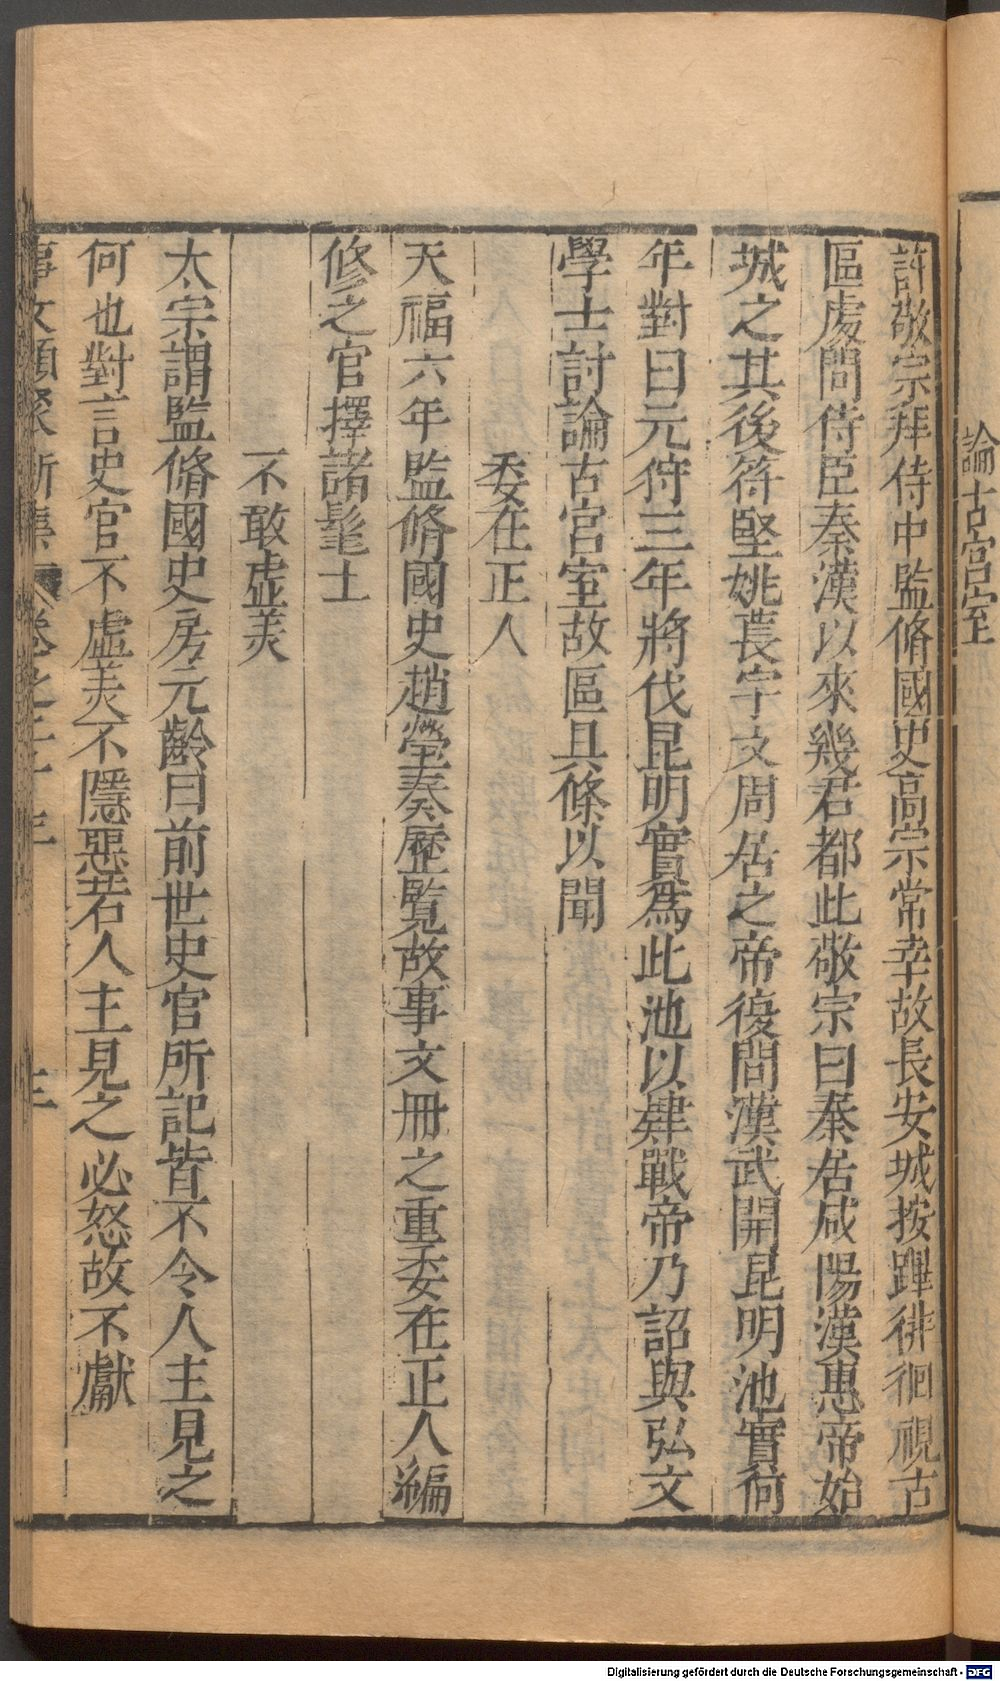 論古宮室
許敬宗拜侍中監脩國史高宗常幸故長安城按蹕徘徊視古
區處問侍臣秦漢以來幾君都此敬宗曰秦居咸陽漢惠帝始
城之其後苻堅姚萇宇文周居之帝復問漢武開昆明池實何
年對曰元狩三年將伐昆明實爲此池以肄戰帝乃詔與弘文
學士討論古宮室故區具條以聞
委在正人
天福六年監脩國史趙瑩奏歷覽故事文冊之重委在正人編
修之官擇諸髦士
不敢虛美
太宗謂監脩國史房元齡曰前世史官所記皆不令人主見之
何也對言史官不虛美不隱惡若人主見之必怒故不獻
事文類聚新集 卷之二十三 三
Digitalisierung gefördert durch die Deutsche Forschungsgemeinschaft - DFG